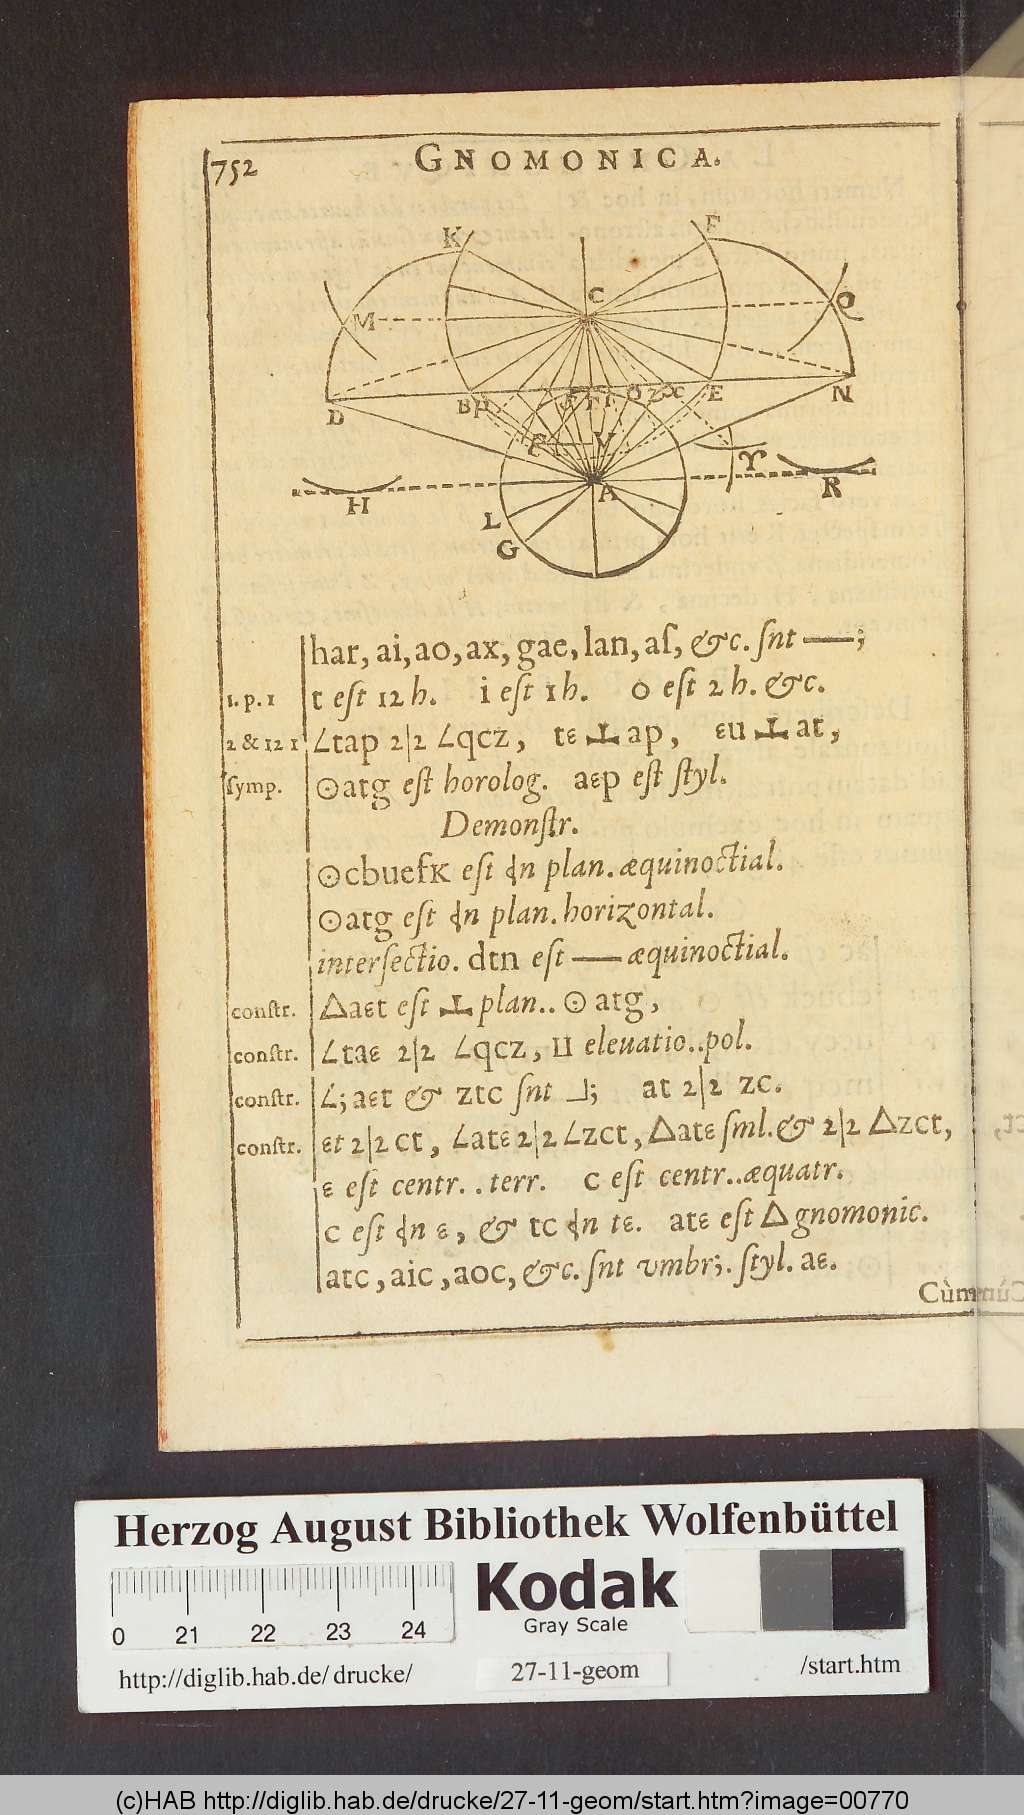 752 GNOMONICA.
K F
C
M Q
D B E N
V
H A ♈ R
L
G
har, ai, ao, ax, gae, lan, aſ, &c. ſnt —;
1. p. 1 t eſt 12 h. i eſt 1 h. o eſt 2 h. &c.
2 & 12 1 ∠tap 2|2 ∠qcz, tε ⊥ ap, εu ⊥ at,
ſymp. ⊙atg eſt horolog. aεp eſt ſtyl.
Demonſtr.
⊙cbuefK eſt ɖn plan. æquinoctial.
⊙atg eſt ɖn plan. horizontal.
interſectio. dtn eſt — æquinoctial.
conſtr. △aεt eſt ⊥ plan.. ⊙ atg,
conſtr. ∠taε 2|2 ∠qcz, II eleuatio..pol.
conſtr. ∠; aεt & ztc ſnt ⅃; at 2|2 zc.
conſtr. εt 2|2 ct, ∠atε 2|2 ∠zct, △atε ſml. & 2|2 △zct,
ε eſt centr..terr. c eſt centr..æquatr.
c eſt ɖn ε, & tc ɖn tε. atε eſt △ gnomonic.
atc, aic, aoc, &c. ſnt vmbr;. ſtyl. aε.
Cùm
Herzog August Bibliothek Wolfenbüttel
0 21 22 23 24
Kodak
Gray Scale
http://diglib.hab.de/drucke/ 27-11-geom /start.htm
(c)HAB http://diglib.hab.de/drucke/27-11-geom/start.htm?image=00770